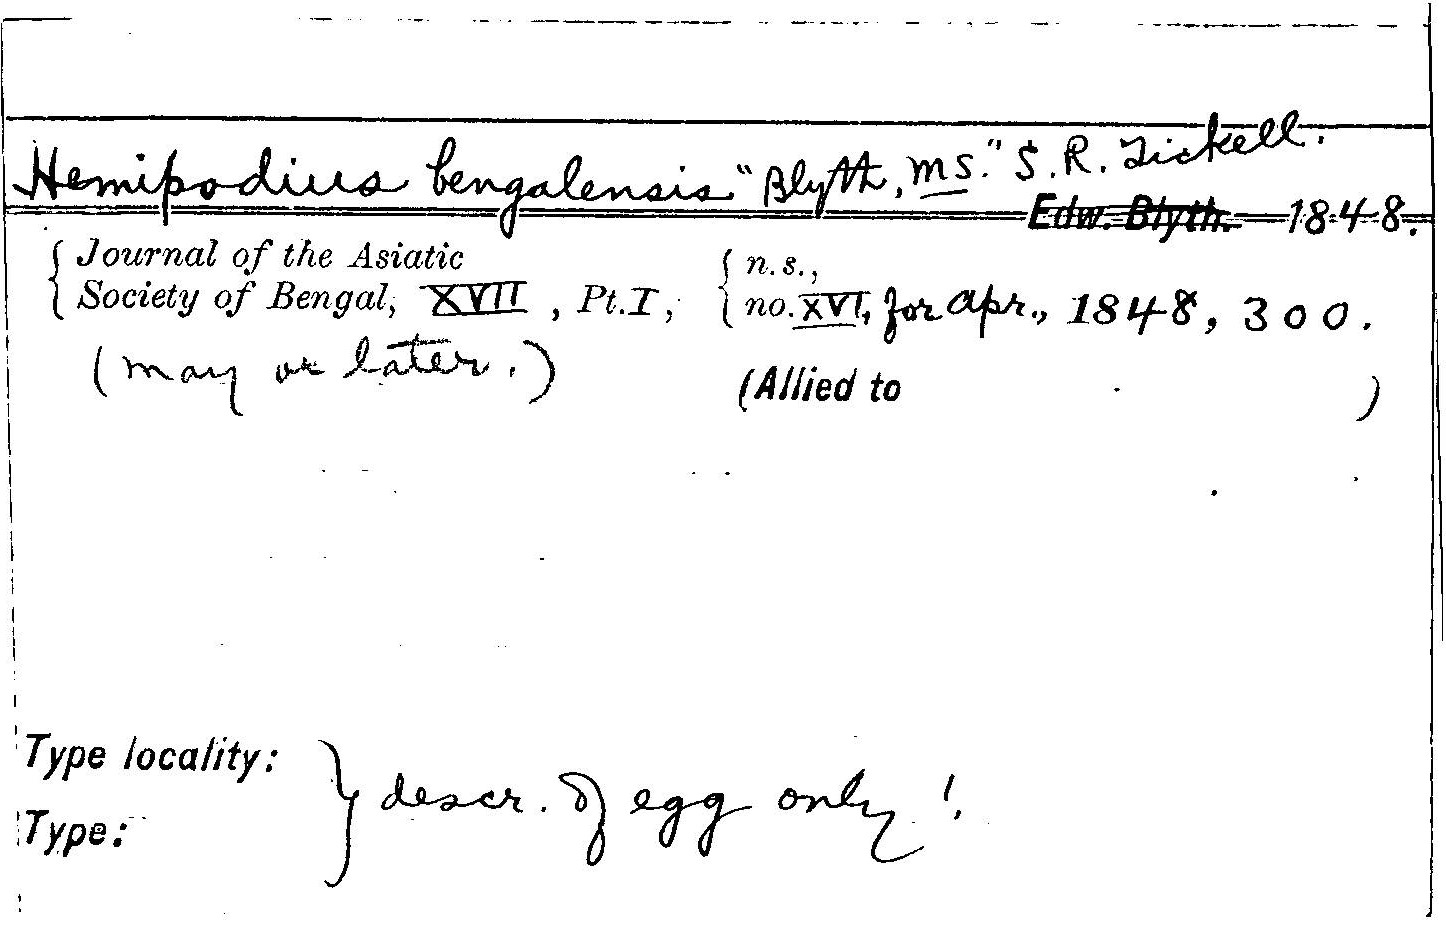 Hemipodius bengalensis "Blyth, MS." S. R. Tickell.
Edw. Blyth. 1848.
Journal of the Asiatic
Society of Bengal, XVII, Pt. I,
n.s.,
no. XVI, for Apr., 1848, 300.
(may or later.)
(Allied to )
Type locality:
Type:
descr. of egg only!